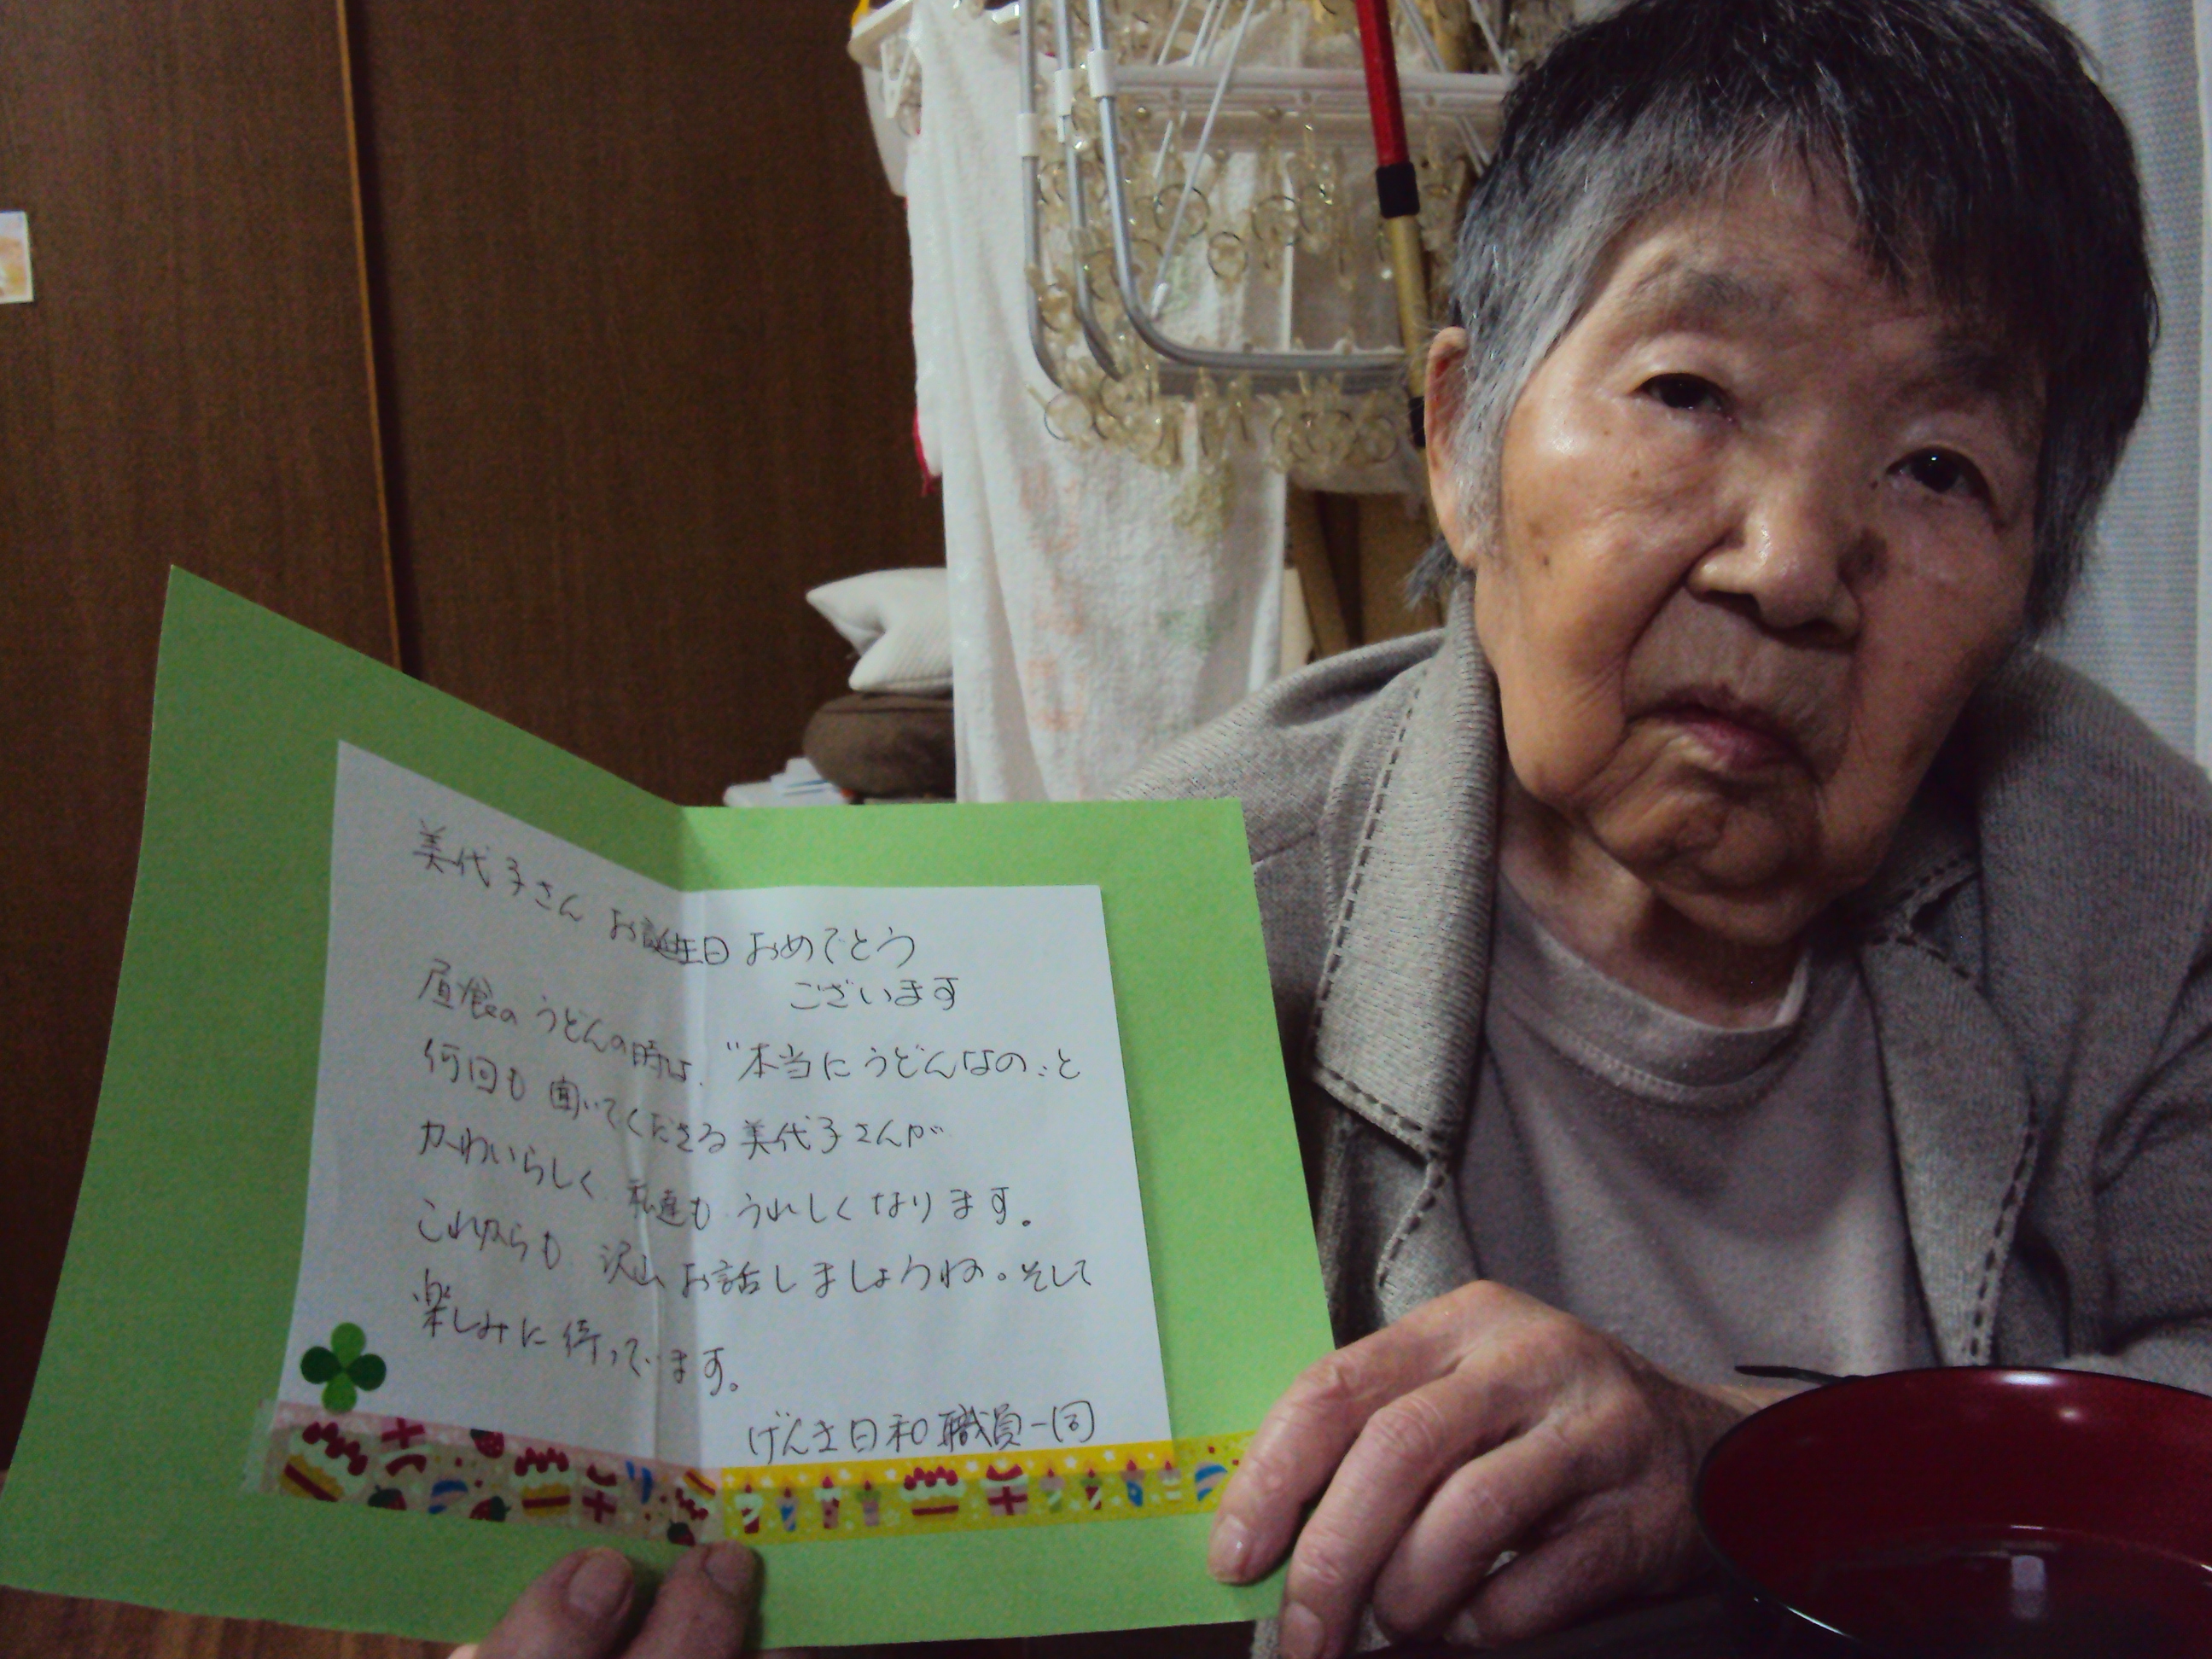 美代子さん お誕生日 おめでとう
ございます
昼食の うどんの時は、"本当に うどんなの"と
何回も 聞いてくださる 美代子さんが
かわいらしく 私達も うれしくなります。
これからも 沢山 お話しましょうね。そして
楽しみに 待っています。
げんき日和 職員一同